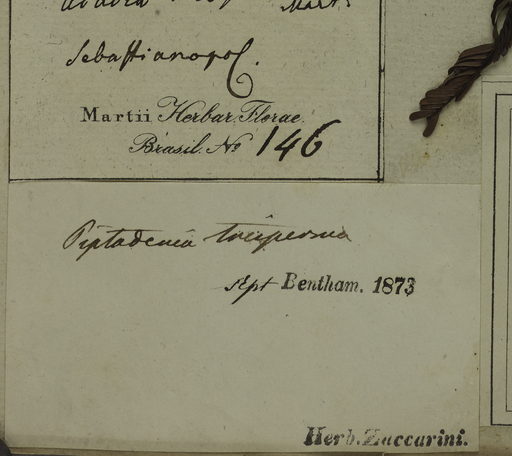 Mart.
Sebastianopol.
Martii Herbar. Florae
Brasil. No 146
Piptadenia
Sept Bentham. 1873
Herb. Zuccarini.